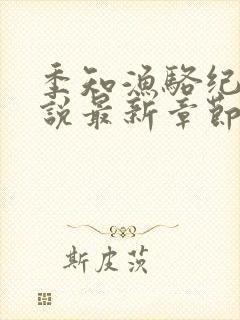 季知漁駱紀
說最新章節
斯皮茨